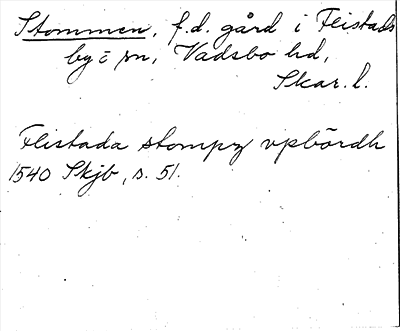 Stommen, f.d. gård i Flistads
by o sn, Vadsbo hd,
Skar. l.
Flistada stompz vpbördh
1540 Skjb, s. 51.